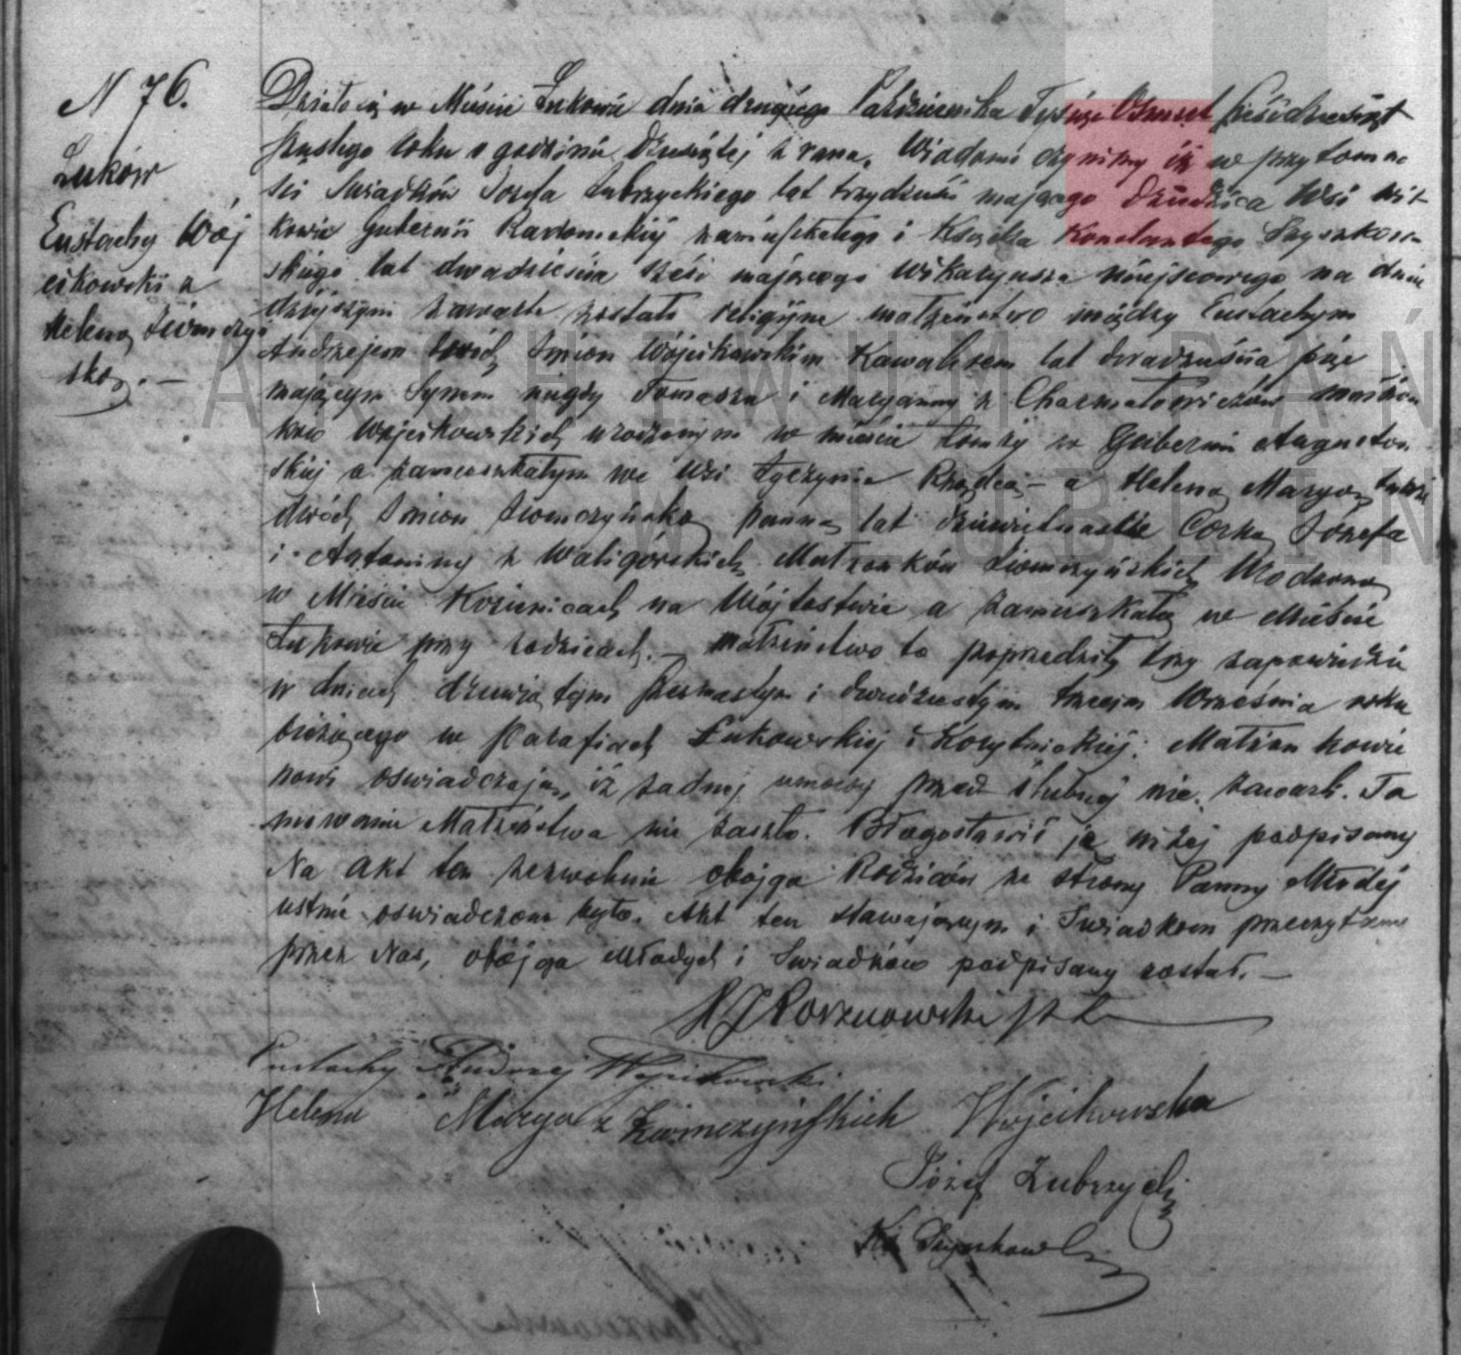 N 76.
Łuków
Eustachy Wój
cikowski z
Heleną Ziomczyń
ską. —
Działo się w Mieście Łukowie dnia drugiego Października Tysiąc Ośmset sześćdziesiąt
szóstego roku o godzinie dziesiątej z rana. Wiadomo czynimy iż w przytomno
ści Świadków Józefa Zubrzyckiego lat trzydzieści mającego Dziedzica Wsi Wit-
kowie Gubernii Radomskiej zamieszkałego i Księdza Konstantego Szyszkow-
skiego lat dwadzieścia sześć mającego Wikaryusza miejscowego na dniu
dzisiejszym zawarte zostało religijne małżeństwo między Eustachym
Andrzejem dwóch Imion Wójcikowskim Kawalerem lat dwadzieścia pięć
mającym Synem niegdy Tomasza i Maryanny z Charmatowiczów małżon
ków Wójcikowskich urodzonym w mieście Łomży w Gubernii Augustow
skiej a zamieszkałym we Wsi Rządcą — a Heleną Maryą
dwóch Imion Ziomczyńską panną lat dziewiętnaście Córką Józefa
i Antoniny z Waligórskich Małżonków Ziomczyńskich Urodzoną
w Mieście Kozienicach na Wójtostwie a zamieszkałą w Mieście
Łukowie przy rodzicach. — małżeństwo to poprzedziły trzy zapowiedzie
w dniach dziewiątym szesnastym i dwudziestym trzecim Września roku
bieżącego w Parafiach Łukowskiej i Korytnickiej: Małżonkowie
nowi oswiadczają, iż żadnej umowy przed ślubnej nie zawarli. Ta
mowanie Małżeństwa nie zaszło. Błogosławił je niżej podpisany
Na Akt ten zezwolenie obojga Rodziców ze strony Panny Młodej
ustnie oswiadczone było. Akt ten stawającym i Świadkom przeczytany
przez Nas, obojga Młodych i Świadków podpisany został. —
Eustachy Andrzej Wójcikowski
Helena Marya z Ziomczyńskich Wojcikowska
Józef Zubrzycki
Ks. Szyszkowski
ARCHIWUM PAŃ
W LUBLIN